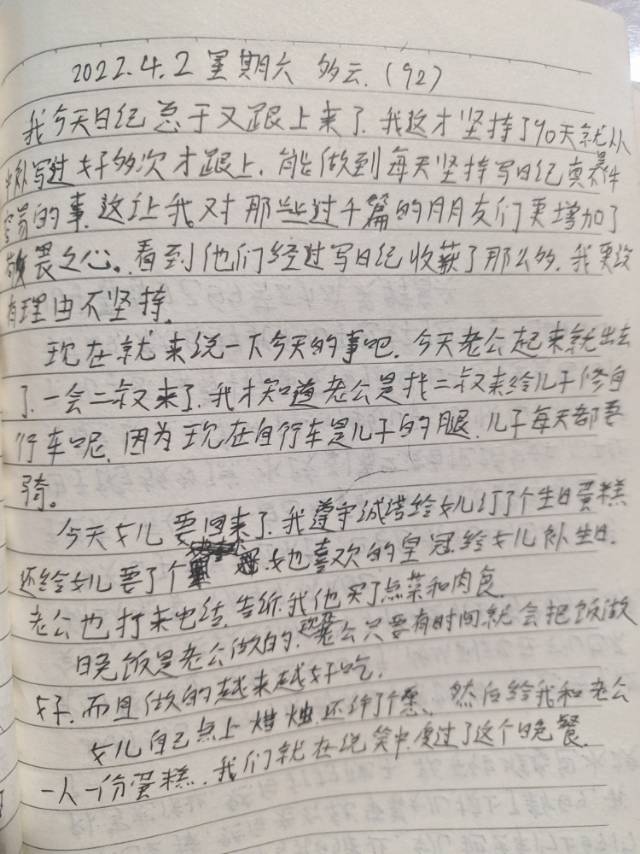 2022.4.2 星期六 多云.(92)
我今天日纪总于又跟上来了.我这才坚持了90天就从
补写过好多次才跟上.能做到每天坚持写日纪真养件
容易的事.这让我对那些过千篇的月月友们更增加了
敬畏之心。看到他们经过写日纪收获了那么多.我更没
有理由不坚持.
现在就来说一下今天的事吧.今天老公起来就出去
了.一会二叔又来了.我才知道老公是找二叔来给儿子修自
行车呢.因为现在自行车是儿子的腿.儿子每天都要
骑。
今天女儿要回来了.我遵守诚诺给女儿订了个生日蛋糕
还给女儿要了个她喜欢的皇冠.给女儿补生日.
老公也打来电话.告诉我他买了点菜和肉食.
晚饭是老公做的.老公只要有时间就会把饭做
好.而且做的越来越好吃.
女儿自己点上蜡烛.还许了个愿、然后给我和老公
一人一份蛋糕.我们就在说笑中度过了这个晚餐.